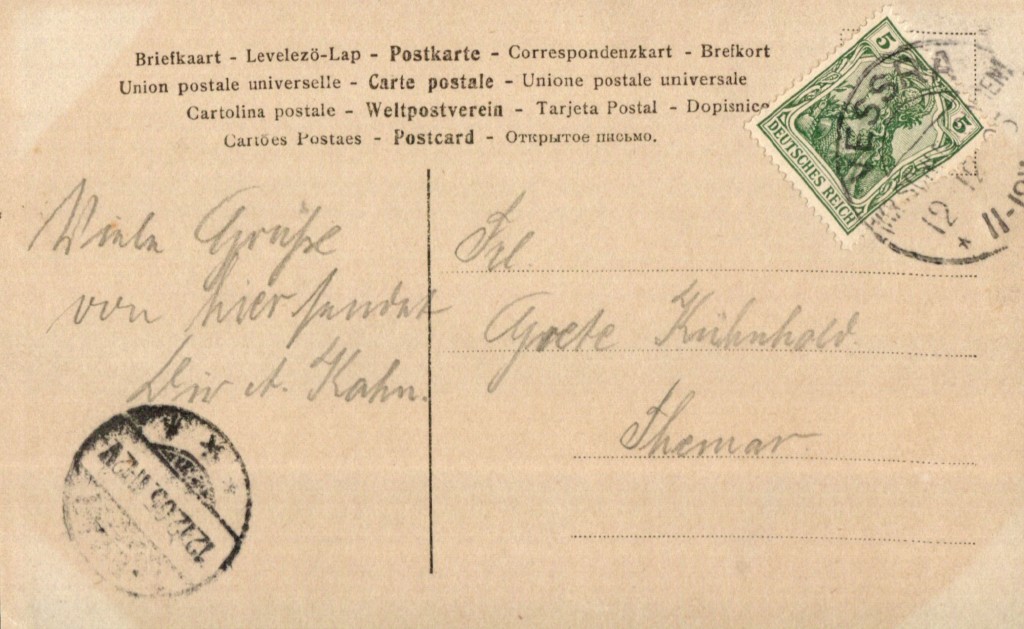 Briefkaart - Levelező-Lap - Postkarte - Correspondenzkart - Brefkort
Union postale universelle - Carte postale - Unione postale universale
Cartolina postale - Weltpostverein - Tarjeta Postal - Dopisnice
Cartões Postaes - Postcard - Открытое письмо.
5
5
DEUTSCHES REICH
VESSRA
12 12
* 11-12V
Viele Grüße
von hier sendet
Dir A. Kahn.
Frl.
Grete Kühnhold.
Themar
12.12.05. 11-12V